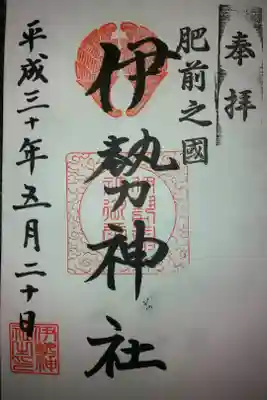 奉拝
肥前之國
伊勢神社
平成三十年五月二十日